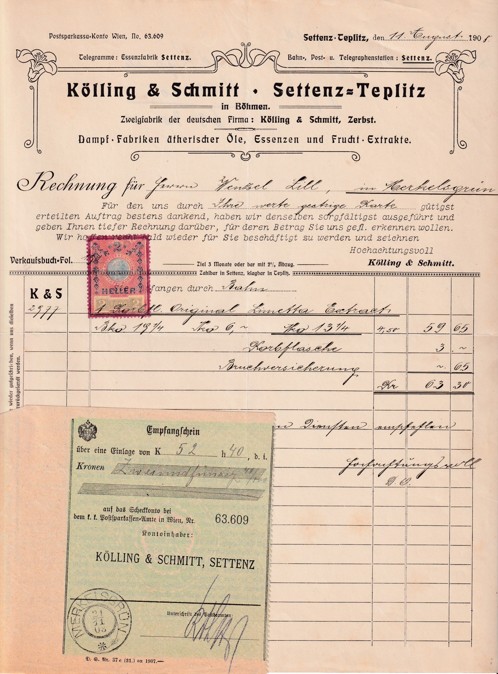 Postsparkassa-Konto Wien, No. 63.609
Settenz-Teplitz, den 11 August 1908
Telegramme: Essenzfabrik Settenz.
Bahn-, Post- u. Telegraphenstation: Settenz.
Kölling & Schmitt · Settenz=Teplitz
in Böhmen.
Zweigfabrik der deutschen Firma: Kölling & Schmitt, Zerbst.
Dampf-Fabriken ätherischer Öle, Essenzen und Frucht-Extrakte.
Rechnung für Herrn Wenzel Lill, in Merkelsgrün
Für den uns durch Ihre werte gestrige Karte gütigst
erteilten Auftrag bestens dankend, haben wir denselben sorgfältigst ausgeführt und
geben Ihnen tiefer Rechnung darüber, für deren Betrag Sie uns gefl. erkennen wollen.
Wir hoffen bald wieder für Sie beschäftigt zu werden und zeichnen
Hochachtungsvoll
Verkaufsbuch-Fol.
Ziel 3 Monate oder bar mit 2%, Abzug.
Zahlbar in Settenz, klagbar in Teplitz.
Kölling & Schmitt.
HELLER
K & S
2977
durch Bahn
1 Original Limetta Extract
Bko 19¼ Tko 6,~ Nko 13¼ 4,50 59 65
Korbflasche 3 ~
Bruchversicherung ~ 65
Kr 63 30
Diensten empfohlen
Hochachtungsvoll
D. O.
Empfangschein
über eine Einlage von K 52 h 40, d. i.
Kronen Zweiundfünfzig
auf das Scheckkonto bei
dem k. k. Postsparkassen-Amte in Wien, Nr. 63.609
Kontoinhaber:
KÖLLING & SCHMITT, SETTENZ
MERKELSGRÜN
Unterschrift des Postbeamten:
D. S. Nr. 57 c (11.) ex 1907.—